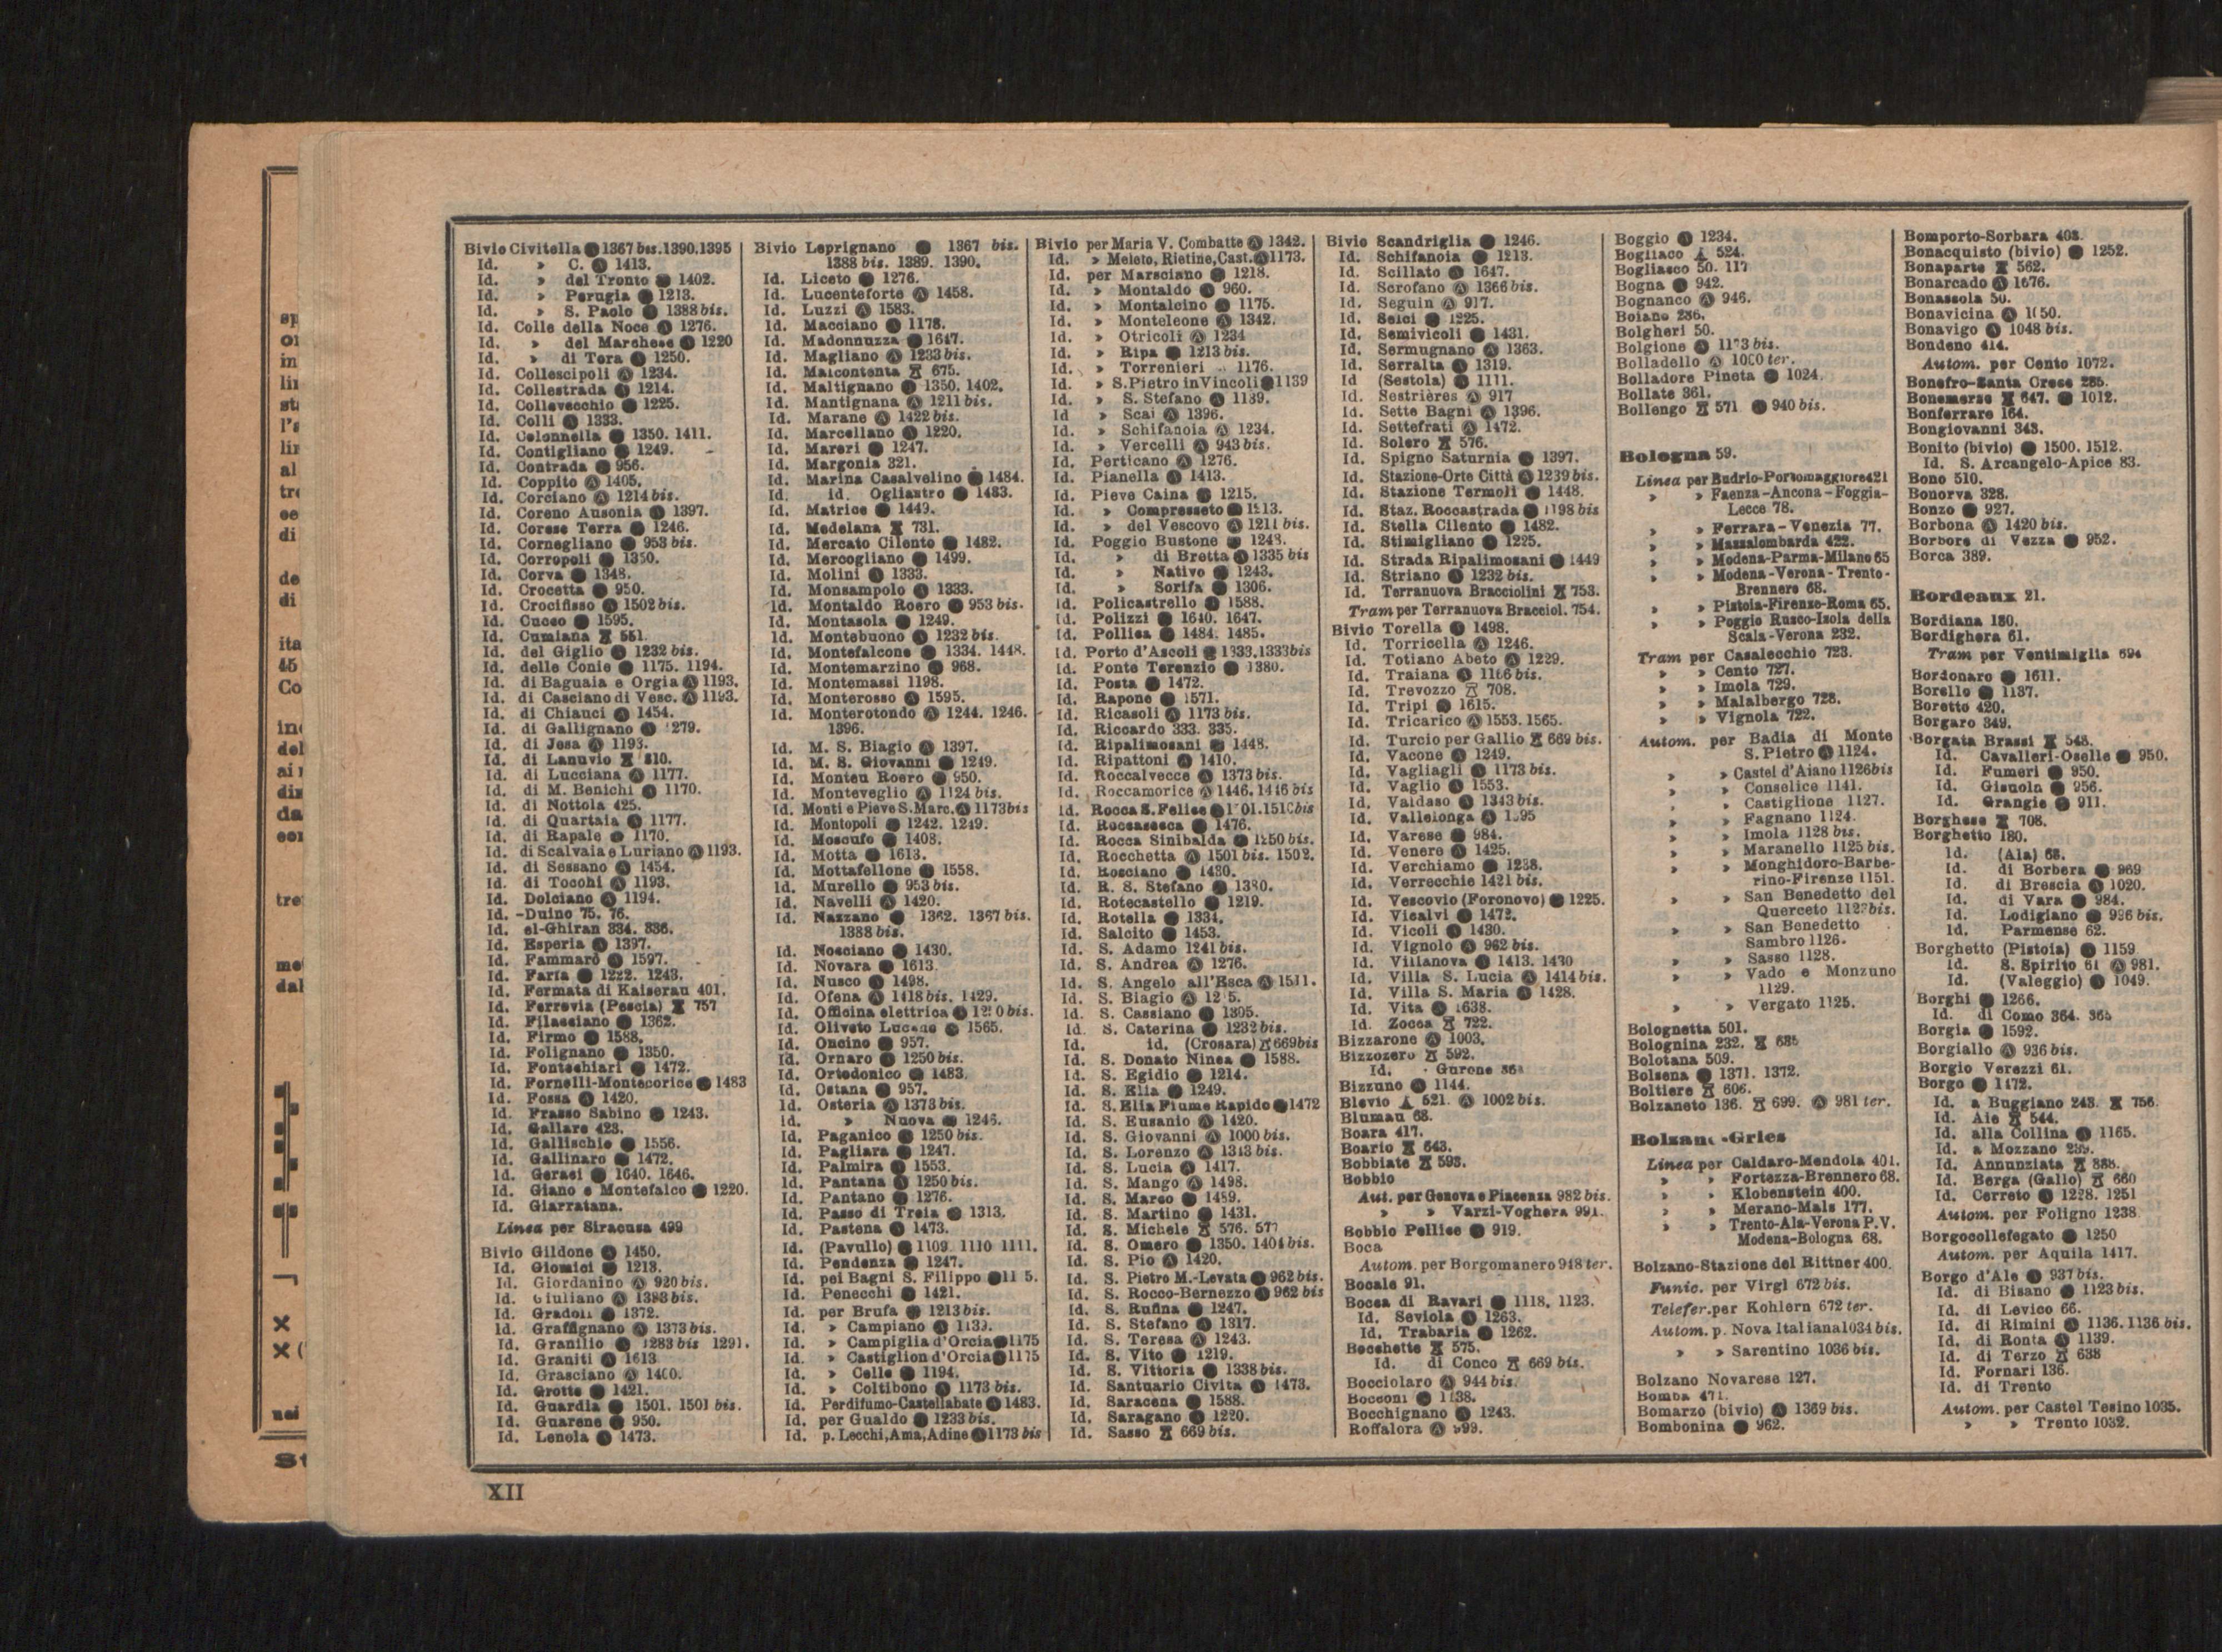 Bivio Civitella 1367 bis. 1390. 1395
Id. » C. 1413.
Id. » del Tronto 1402.
Id. » Perugia 1213.
Id. » S. Paolo 1388 bis.
Id. Colle della Noce 1276.
Id. » del Marchese 1220
Id. » di Tora 1250.
Id. Collescipoli 1234.
Id. Collestrada 1214.
Id. Collevecchio 1225.
Id. Colli 1333.
Id. Colonnella 1350. 1411.
Id. Contigliano 1249.
Id. Contrada 956.
Id. Coppito 1405.
Id. Corciano 1214 bis.
Id. Coreno Ausonia 1397.
Id. Corese Terra 1246.
Id. Cornegliano 953 bis.
Id. Corropoli 1350.
Id. Corva 1348.
Id. Crocetta 950.
Id. Crocifisso 1502 bis.
Id. Cuceo 1595.
Id. Cumiana 551.
Id. del Giglio 1232 bis.
Id. delle Conie 1175. 1194.
Id. di Bagnaia e Orgia 1193.
Id. di Casciano di Vesc. 1193.
Id. di Chiauci 1454.
Id. di Gallignano 1279.
Id. di Jesa 1193.
Id. di Lanuvio 810.
Id. di Lucciana 1177.
Id. di M. Benichi 1170.
Id. di Nottola 425.
Id. di Quartaia 1177.
Id. di Rapale 1170.
Id. di Scalvaia e Luriano 1193.
Id. di Sessano 1454.
Id. di Tocchi 1193.
Id. Dolciano 1194.
Id. -Duino 75. 76.
Id. el-Ghiran 334. 336.
Id. Esperia 1397.
Id. Fammarò 1597.
Id. Farfa 1222. 1243.
Id. Fermata di Kaiserau 401.
Id. Ferrovia (Pescia) 757
Id. Filacciano 1362.
Id. Firmo 1588.
Id. Folignano 1350.
Id. Fontechiari 1472.
Id. Fornelli-Montecorice 1483
Id. Fossa 1420.
Id. Frasso Sabino 1243.
Id. Gallare 423.
Id. Gallischio 1556.
Id. Gallinaro 1472.
Id. Geraci 1640. 1646.
Id. Giano e Montefalco 1220.
Id. Giarratana.
Linea per Siracusa 499
Bivio Gildone 1450.
Id. Giomici 1213.
Id. Giordanino 920 bis.
Id. Giuliano 1393 bis.
Id. Gradoli 1372.
Id. Graffignano 1373 bis.
Id. Granilio 1283 bis 1291.
Id. Graniti 1613
Id. Grasciano 1400.
Id. Grotte 1421.
Id. Guardia 1501. 1501 bis.
Id. Guarene 950.
Id. Lenola 1473.
Bivio Leprignano 1367 bis.
1388 bis. 1389. 1390.
Id. Liceto 1276.
Id. Lucenteforte 1458.
Id. Luzzi 1583.
Id. Macciano 1178.
Id. Madonnuzza 1647.
Id. Magliano 1233 bis.
Id. Malcontenta 675.
Id. Maltignano 1350. 1402.
Id. Mantignana 1211 bis.
Id. Marane 1422 bis.
Id. Marcellano 1220.
Id. Mareri 1247.
Id. Margonia 321.
Id. Marina Casalvelino 1484.
Id. id. Ogliastro 1483.
Id. Matrice 1449.
Id. Medelana 731.
Id. Mercato Cilento 1482.
Id. Mercogliano 1499.
Id. Molini 1333.
Id. Monsampolo 1333.
Id. Montaldo Roero 953 bis.
Id. Montasola 1249.
Id. Montebuono 1232 bis.
Id. Montefalcone 1334. 1448.
Id. Montemarzino 968.
Id. Montemassi 1198.
Id. Monterosso 1595.
Id. Monterotondo 1244. 1246.
1396.
Id. M. S. Biagio 1397.
Id. M. S. Giovanni 1249.
Id. Monteu Roero 950.
Id. Monteveglio 1124 bis.
Id. Monti e Pieve S. Marc. 1173 bis
Id. Montopoli 1242. 1249.
Id. Moscufo 1408.
Id. Motta 1613.
Id. Mottafellone 1558.
Id. Murello 953 bis.
Id. Navelli 1420.
Id. Nazzano 1362. 1367 bis.
1388 bis.
Id. Nosciano 1430.
Id. Novara 1613.
Id. Nusco 1498.
Id. Ofena 1418 bis. 1429.
Id. Officina elettrica bis.
Id. Oliveto Lucano 1565.
Id. Oncino 957.
Id. Ornaro 1250 bis.
Id. Ortodonico 1483.
Id. Ostana 957.
Id. Osteria 1373 bis.
Id. » Nuova 1246.
Id. Paganico 1250 bis.
Id. Pagliara 1247.
Id. Palmira 1553.
Id. Pantana 1250 bis.
Id. Pantano 1276.
Id. Passo di Treia 1313.
Id. Pastena 1473.
Id. (Pavullo) 1109 1110 1111.
Id. Pendenza 1247.
Id. pei Bagni S. Filippo
Id. Penecchi 1421.
Id. per Brufa 1213 bis.
Id. » Campiano 1139.
Id. » Campiglia d'Orcia 1175
Id. » Castiglion d'Orcia 1175
Id. » Celle 1194.
Id. » Coltibono 1173 bis.
Id. Perdifumo-Castellabate 1483.
Id. per Gualdo 1233 bis.
Id. p. Lecchi, Ama, Adine 1173 bis
Bivio per Maria V. Combatte 1342.
Id. » Meleto, Rietine, Cast. 1173.
Id. per Marsciano 1218.
Id. » Montaldo 960.
Id. » Montalcino 1175.
Id. » Monteleone 1342.
Id. » Otricoli 1234
Id. » Ripa 1213 bis.
Id. » Torrenieri 1176.
Id. » S. Pietro in Vincoli 1139
Id. » S. Stefano 1139.
Id » Scai 1396.
Id. » Schifanoia 1234.
Id. » Vercelli 943 bis.
Id. Perticano 1276.
Id. Pianella 1413.
Id. Pieve Caina 1215.
Id. » Compresseto 1213.
Id. » del Vescovo 1211 bis.
Id. Poggio Bustone 1248.
Id. » di Bretta 1335 bis
Id. » Nativo 1243.
Id. » Sorifa 1306.
Id. Policastrello 1588.
Id. Polizzi 1640. 1647.
Id. Pollica 1484. 1485.
Id. Porto d'Ascoli 1333. 1333 bis
Id. Ponte Terenzio 1380.
Id. Posta 1472.
Id. Rapone 1571.
Id. Ricasoli 1173 bis.
Id. Riccardo 333. 335.
Id. Ripalimosani 1448.
Id. Ripattoni 1410.
Id. Roccalvecce 1373 bis.
Id. Roccamorice 1446. 1446 bis
Id. Rocca S. Felice 1501. 1510 bis
Id. Roccasecca 1476.
Id. Rocca Sinibalda 1250 bis.
Id. Rocchetta 1501 bis. 1502.
Id. Rosciano 1430.
Id. R. S. Stefano 1380.
Id. Rotecastello 1219.
Id. Rotella 1334.
Id. Salcito 1453.
Id. S. Adamo 1241 bis.
Id. S. Andrea 1276.
Id. S. Angelo all'Esca 1511.
Id. S. Biagio
Id. S. Cassiano 1305.
Id. S. Caterina 1232 bis.
Id. id. (Crosara) 669 bis
Id. S. Donato Ninea 1588.
Id. S. Egidio 1214.
Id. S. Elia 1249.
Id. S. Elia Fiume Rapido 1472
Id. S. Eusanio 1420.
Id. S. Giovanni 1000 bis.
Id. S. Lorenzo 1343 bis.
Id. S. Lucia 1417.
Id. S. Mango 1498.
Id. S. Marco 1489.
Id. S. Martino 1431.
Id. S. Michele 576. 577
Id. S. Omero 1350. 1404 bis.
Id. S. Pio 1420.
Id. S. Pietro M.-Levata 962 bis.
Id. S. Rocco-Bernezzo 962 bis
Id. S. Rufina 1247.
Id. S. Stefano 1317.
Id. S. Teresa 1243.
Id. S. Vito 1219.
Id. S. Vittoria 1338 bis.
Id. Santuario Civita 1473.
Id. Saracena 1588.
Id. Saragano 1220.
Id. Sasso 669 bis.
Bivio Scandriglia 1246.
Id. Schifanoia 1213.
Id. Scillato 1647.
Id. Scrofano 1366 bis.
Id. Seguin 917.
Id. Selci 1225.
Id. Semivicoli 1431.
Id. Sermugnano 1363.
Id. Serralta 1319.
Id (Sestola) 1111.
Id. Sestrières 917
Id. Sette Bagni 1396.
Id. Settefrati 1472.
Id. Solero 576.
Id. Spigno Saturnia 1397.
Id. Stazione-Orte Città 1239 bis.
Id. Stazione Termoli 1448.
Id. Staz. Roccastrada 1198 bis
Id. Stella Cilento 1482.
Id. Stimigliano 1225.
Id. Strada Ripalimosani 1449
Id. Striano 1232 bis.
Id. Terranuova Bracciolini 753.
Tram per Terranuova Bracciol. 754.
Bivio Torella 1498.
Id. Torricella 1246.
Id. Totiano Abeto 1229.
Id. Traiana 1166 bis.
Id. Trevozzo 708.
Id. Tripi 1615.
Id. Tricarico 1553. 1565.
Id. Turcio per Gallio 669 bis.
Id. Vacone 1249.
Id. Vagliagli 1173 bis.
Id. Vaglio 1553.
Id. Valdaso 1343 bis.
Id. Vallelonga 1595
Id. Varese 984.
Id. Venere 1425.
Id. Verchiamo 1238.
Id. Verrecchie 1421 bis.
Id. Vescovio (Foronovo) 1225.
Id. Vicalvi 1472.
Id. Vicoli 1430.
Id. Vignolo 962 bis.
Id. Villanova 1413. 1430
Id. Villa S. Lucia 1414 bis.
Id. Villa S. Maria 1428.
Id. Vita 1638.
Id. Zocca 722.
Bizzarone 1003.
Bizzozero 592.
Id. - Gurone
Bizzuno 1144.
Blevio 521. 1002 bis.
Blumau 68.
Boara 417.
Boario 643.
Bobbiate 593.
Bobbio
Aut. per Genova e Piacenza 982 bis.
» » Varzi-Voghera 991.
Bobbio Pellice 919.
Boca
Autom. per Borgomanero 948 ter.
Bocale 91.
Bocca di Ravari 1118. 1123.
Id. Seviola 1263.
Id. Trabaria 1262.
Bocchette 575.
Id. di Conco 669 bis.
Bocciolaro 944 bis.
Bocconi 1138.
Bocchignano 1243.
Boffalora 999.
Boggio 1234.
Bogliaco 524.
Bogliasco 50. 117
Bogna 942.
Bognanco 946.
Boiano 286.
Bolgheri 50.
Bolgione 1173 bis.
Bolladello 1000 ter.
Bolladore Pineta 1024.
Bollate 361.
Bollengo 571 940 bis.
Bologna 59.
Linea per Budrio-Portomaggiore 421
» » Faenza-Ancona-Foggia-
Lecce 78.
» » Ferrara-Venezia 77.
» » Massalombarda 422.
» » Modena-Parma-Milano 65
» » Modena-Verona-Trento-
Brennero 68.
» » Pistoia-Firenze-Roma 65.
» » Poggio Rusco-Isola della
Scala-Verona 232.
Tram per Casalecchio 723.
» » Cento 727.
» » Imola 729.
» » Malalbergo 728.
» » Vignola 722.
Autom. per Badia di Monte
S. Pietro 1124.
» » Castel d'Aiano 1126 bis
» » Conselice 1141.
» » Castiglione 1127.
» » Fagnano 1124.
» » Imola 1128 bis.
» » Maranello 1125 bis.
» » Monghidoro-Barbe-
rino-Firenze 1151.
» » San Benedetto del
Querceto 1127 bis.
» » San Benedetto
Sambro 1126.
» » Sasso 1128.
» » Vado e Monzuno
1129.
» » Vergato 1125.
Bolognetta 501.
Bolognina 232. 685
Bolotana 509.
Bolsena 1371. 1372.
Boltiere 606.
Bolzaneto 136. 699. 981 ter.
Bolzano-Gries
Linea per Caldaro-Mendola 401.
» » Fortezza-Brennero 68.
» » Klobenstein 400.
» » Merano-Mals 177.
» » Trento-Ala-Verona P.V.
Modena-Bologna 68.
Bolzano-Stazione del Rittner 400.
Funic. per Virgl 672 bis.
Telefer. per Kohlern 672 ter.
Autom. p. Nova Italiana 1034 bis.
» » Sarentino 1036 bis.
Bolzano Novarese 127.
Bomba 471.
Bomarzo (bivio) 1369 bis.
Bombonina 962.
Bomporto-Sorbara 403.
Bonacquisto (bivio) 1252.
Bonaparte 562.
Bonarcado 1676.
Bonassola 50.
Bonavicina 1050.
Bonavigo 1048 bis.
Bondeno 414.
Autom. per Cento 1072.
Bonefro-Santa Croce 285.
Bonemerse 647. 1012.
Bonferraro 164.
Bongiovanni 343.
Bonito (bivio) 1500. 1512.
Id. S. Arcangelo-Apice 83.
Bono 510.
Bonorva 328.
Bonzo 927.
Borbona 1420 bis.
Borbore di Vezza 952.
Borca 389.
Bordeaux 21.
Bordiana 180.
Bordighera 61.
Tram per Ventimiglia 694
Bordonaro 1611.
Borello 1137.
Boretto 420.
Borgaro 349.
Borgata Brassi 548.
Id. Cavalleri-Oselle 950.
Id. Fumeri 950.
Id. Gisuola 956.
Id. Grangie 911.
Borghese 708.
Borghetto 180.
Id. (Ala) 68.
Id. di Borbera 969
Id. di Brescia 1020.
Id. di Vara 984.
Id. Lodigiano 996 bis.
Id. Parmense 62.
Borghetto (Pistoia) 1159
Id. S. Spirito 61 981.
Id. (Valeggio) 1049.
Borghi 1266.
Id. di Como 364. 365
Borgia 1592.
Borgiallo 936 bis.
Borgio Verezzi 61.
Borgo 1472.
Id. a Buggiano 243. 756.
Id. Aie 544.
Id. alla Collina 1165.
Id. a Mozzano 239.
Id. Annunziata 888.
Id. Berga (Gallo) 660
Id. Cerreto 1228. 1251
Autom. per Foligno 1238
Borgocollefegato 1250
Autom. per Aquila 1417.
Borgo d'Ale 937 bis.
Id. di Bisano 1123 bis.
Id. di Levico 66.
Id. di Rimini 1136. 1136 bis.
Id. di Ronta 1139.
Id. di Terzo 638
Id. Fornari 136.
Id. di Trento
Autom. per Castel Tesino 1035.
» » Trento 1032.
XII